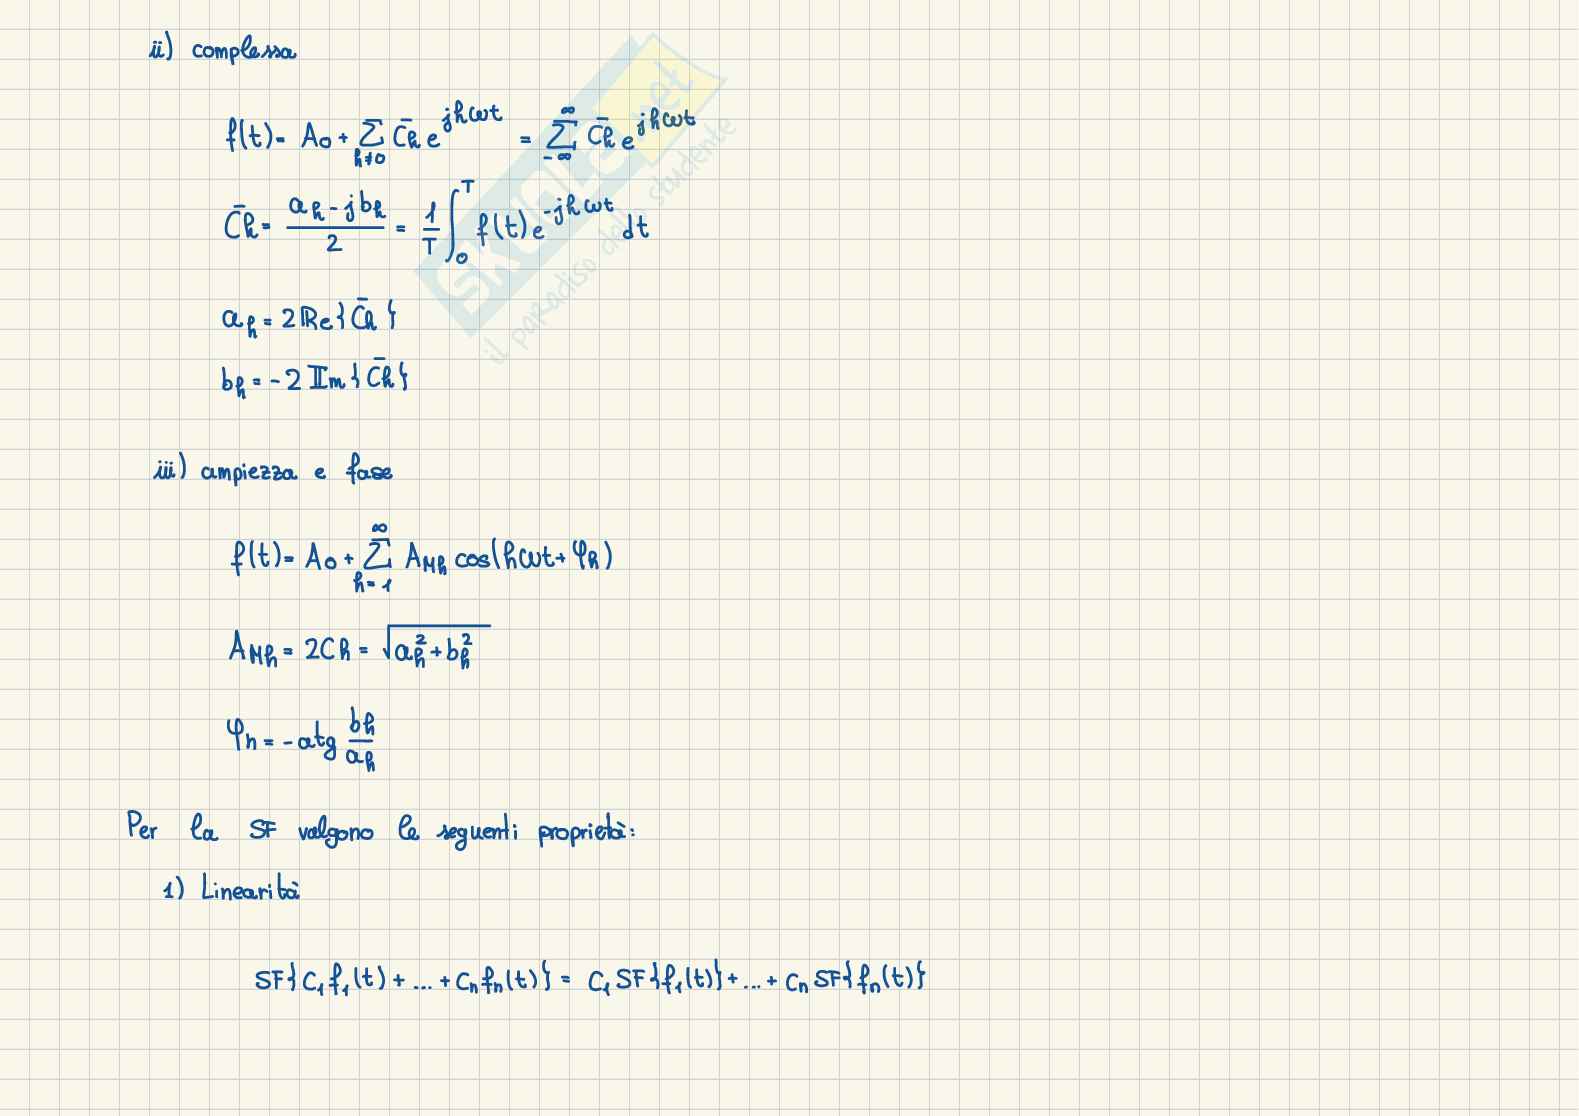 ii) complessa
f(t) = A₀ + Σ_{h≠0} C̄h e^{jhωt} = Σ_{-∞}^{∞} C̄h e^{jhωt}
C̄h = (a_h - jb_h)/2 = 1/T ∫₀^T f(t) e^{-jhωt} dt
a_h = 2 ℝe{C̄h}
b_h = -2 𝕀m{C̄h}
iii) ampiezza e fase
f(t) = A₀ + Σ_{h=1}^{∞} A_{Mh} cos(hωt + φ_h)
A_{Mh} = 2Ch = √(a_h² + b_h²)
φ_h = -atg b_h/a_h
Per la SF valgono le seguenti proprietà:
1) Linearità
SF{C₁f₁(t) + ... + Cₙfₙ(t)} = C₁SF{f₁(t)} + ... + CₙSF{fₙ(t)}
SKUOLA.net
il paradiso dello studente